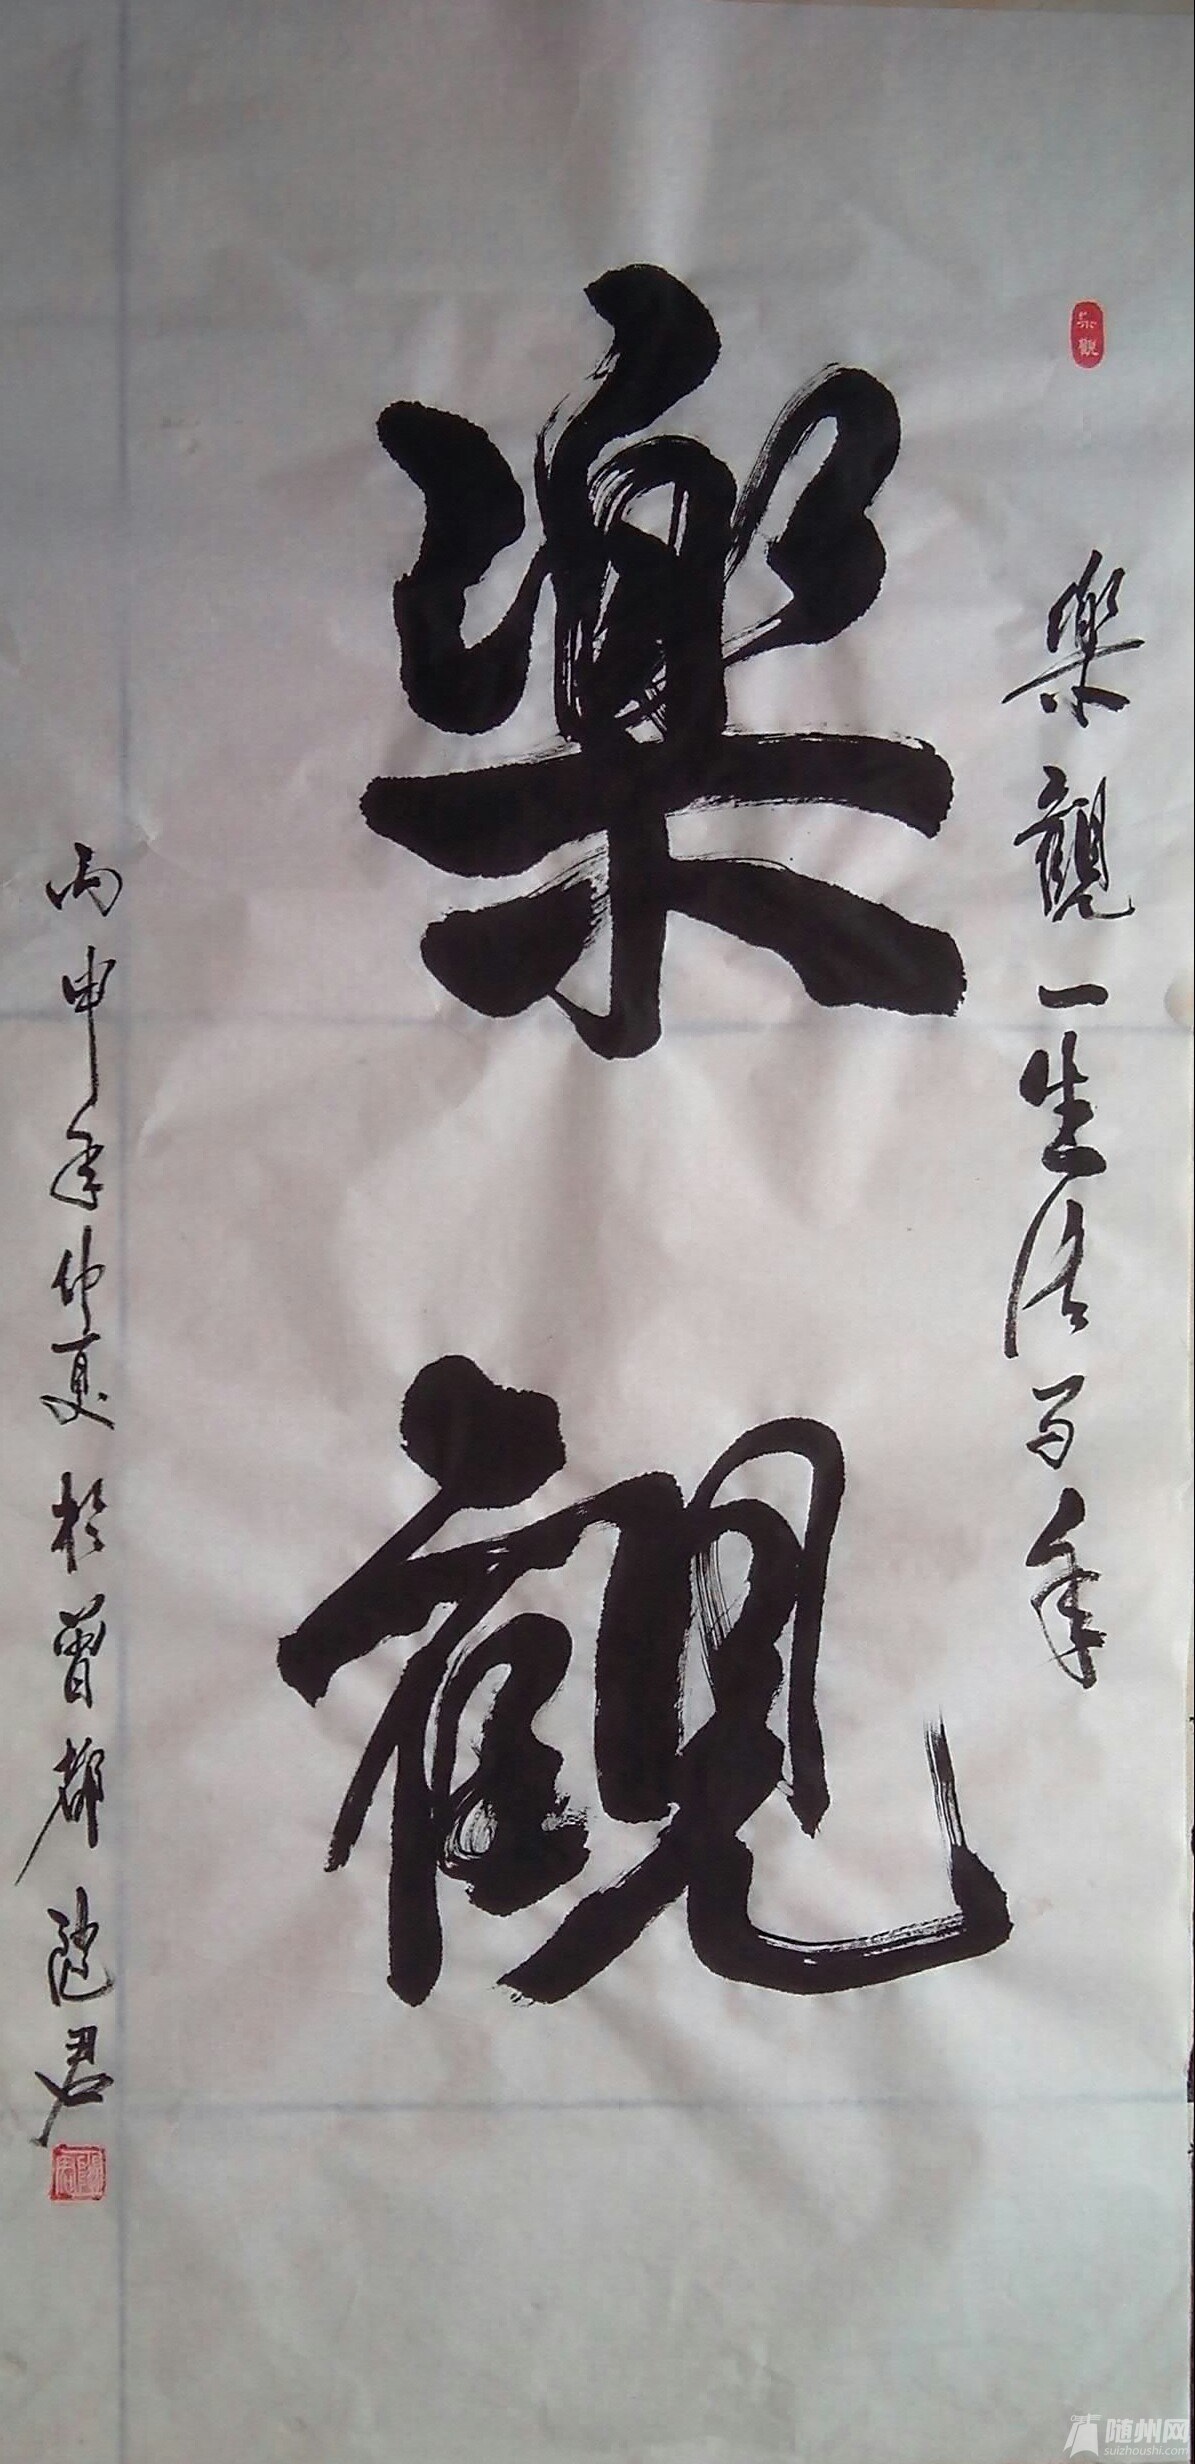 樂觀
樂觀一生活百年
丙申年仲夏於曾都隨君
随州网
suizhoushi.com